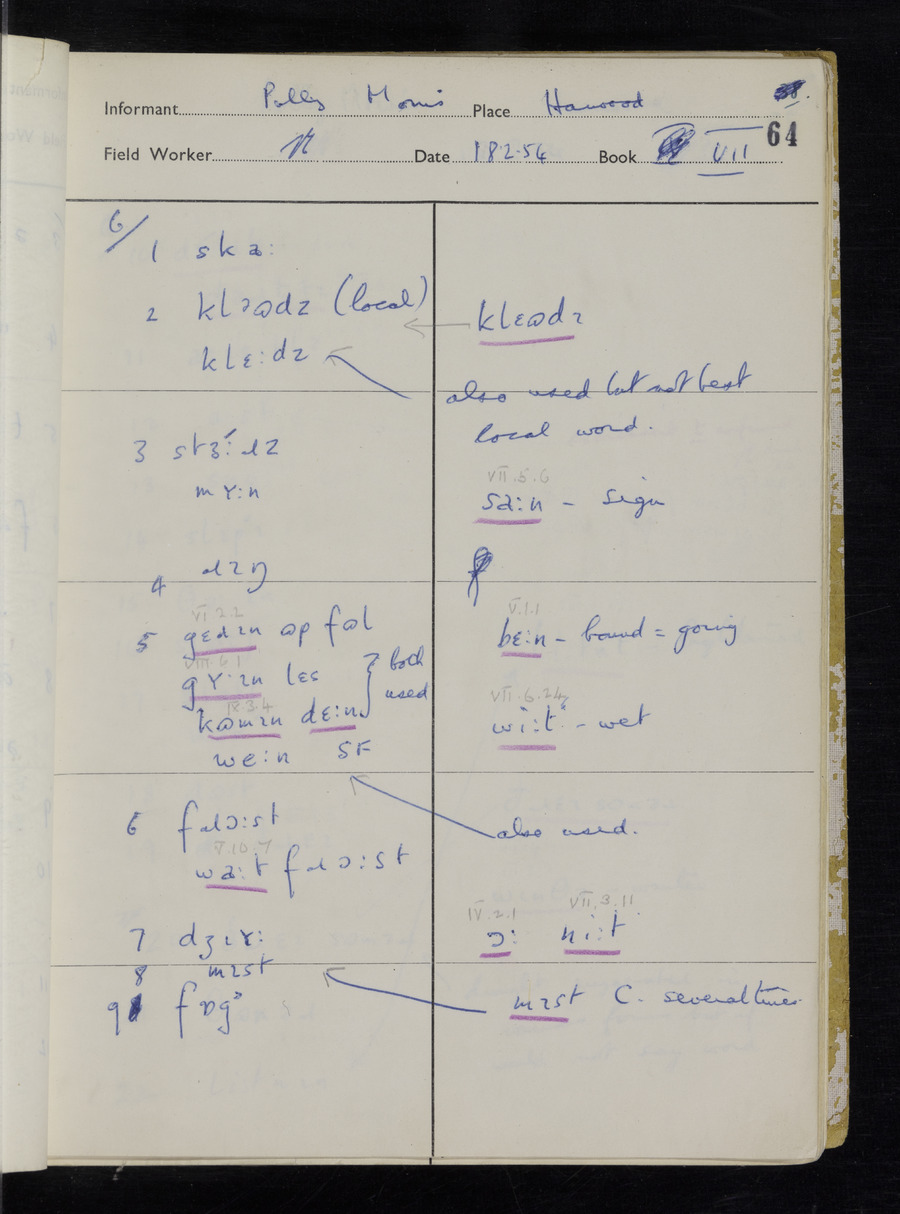 Informant Polly Morris Place Harwood
64
Field Worker Date 18.2.54 Book VII
6/
1 skaː
2 (local)
kleːdz
klɛɷdz
also used but not best
local word.
3
mʏːn
VII.5.6
saːn – sign
4
VI 2.2
5 ɷp fɷl
VIII.6.1
gʏːɪn lɛs
both
used
IX.3.4
kɷmɪn dɛːn
weːn SF
V.1.1
bɛːn – bound = going
VII.6.24
wiːt – wet
also used.
6 fɹɔːst
V.10.7
waːt fɹɔːst
7
IV.2.1 VII.3.11
ɔː niːt
8 mɪst
mɪst C. several times
9 fɒg